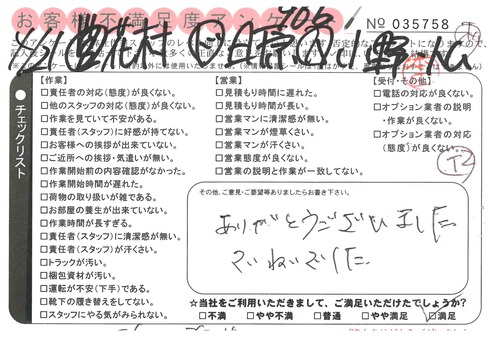 お客様不満足度
No 035758
チェックリスト
【作業】
□責任者の対応(態度)が良くない。
□他のスタッフの対応(態度)が良くない。
□作業を見ていて不安がある。
□責任者(スタッフ)に好感が持てない。
□お客様への挨拶が出来ていない。
□ご近所への挨拶・気遣いが無い。
□作業開始前の内容確認がなかった。
□作業開始時間が遅れた。
□荷物の取り扱いが雑である。
□お部屋の養生が出来ていない。
□作業時間が長すぎる。
□責任者(スタッフ)に清潔感が無い。
□責任者(スタッフ)が汗くさい。
□トラックが汚い。
□梱包資材が汚い。
□運転が不安(下手)である。
□靴下の履き替えをしてない。
□スタッフにやる気がみられない。
【営業】
□見積もり時間に遅れた。
□見積もり時間が長い。
□営業マンに清潔感が無い。
□営業マンが煙草くさい。
□営業マンが汗くさい。
□営業態度が良くない。
□営業の説明と作業が一致してない。
【受付・その他】
□電話の対応が良くない。
□オプション業者の説明
・作業が良くない。
□オプション業者の対応
(態度)が良くない。
その他、ご意見・ご要望等ありましたらお書き下さい。
ありがとうございました
ていねいでした
☆当社をご利用いただきまして、ご満足いただけたでしょうか?
□不満 □やや不満 □普通 □やや満足 □満足